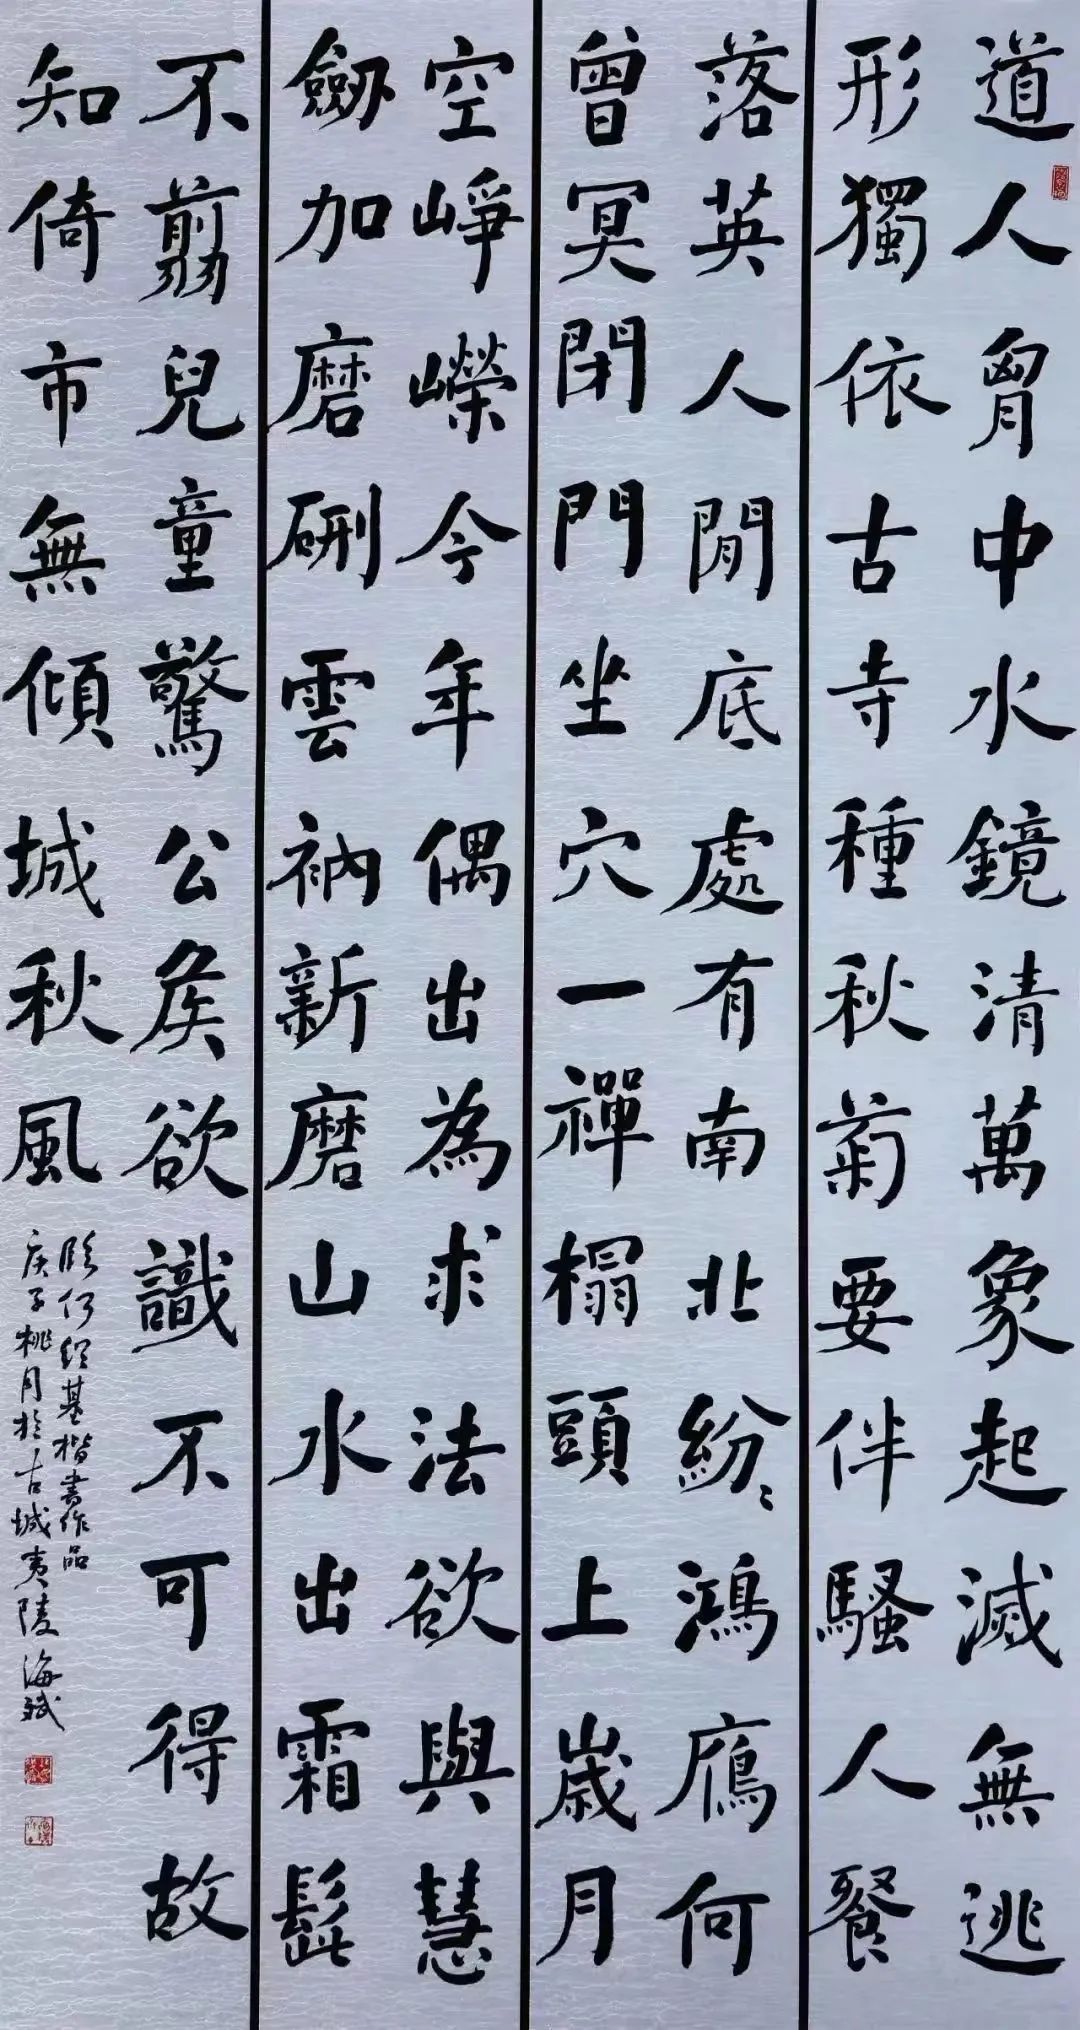 道人胷中水鏡清萬象起滅無逃
形獨依古寺種秋菊要伴騷人餐
落英人閒底處有南北紛〻鴻鴈何
曾冥閉門坐穴一禪榻頭上歲月
空崢嶸今年偶出為求法欲與慧
劒加磨硎雲衲新磨山水出霜髭
不翦兒童驚公矦欲識不可得故
知倚市無傾城秋風
臨何紹基楷書作品
庚子桃月於古城夷陵海斌